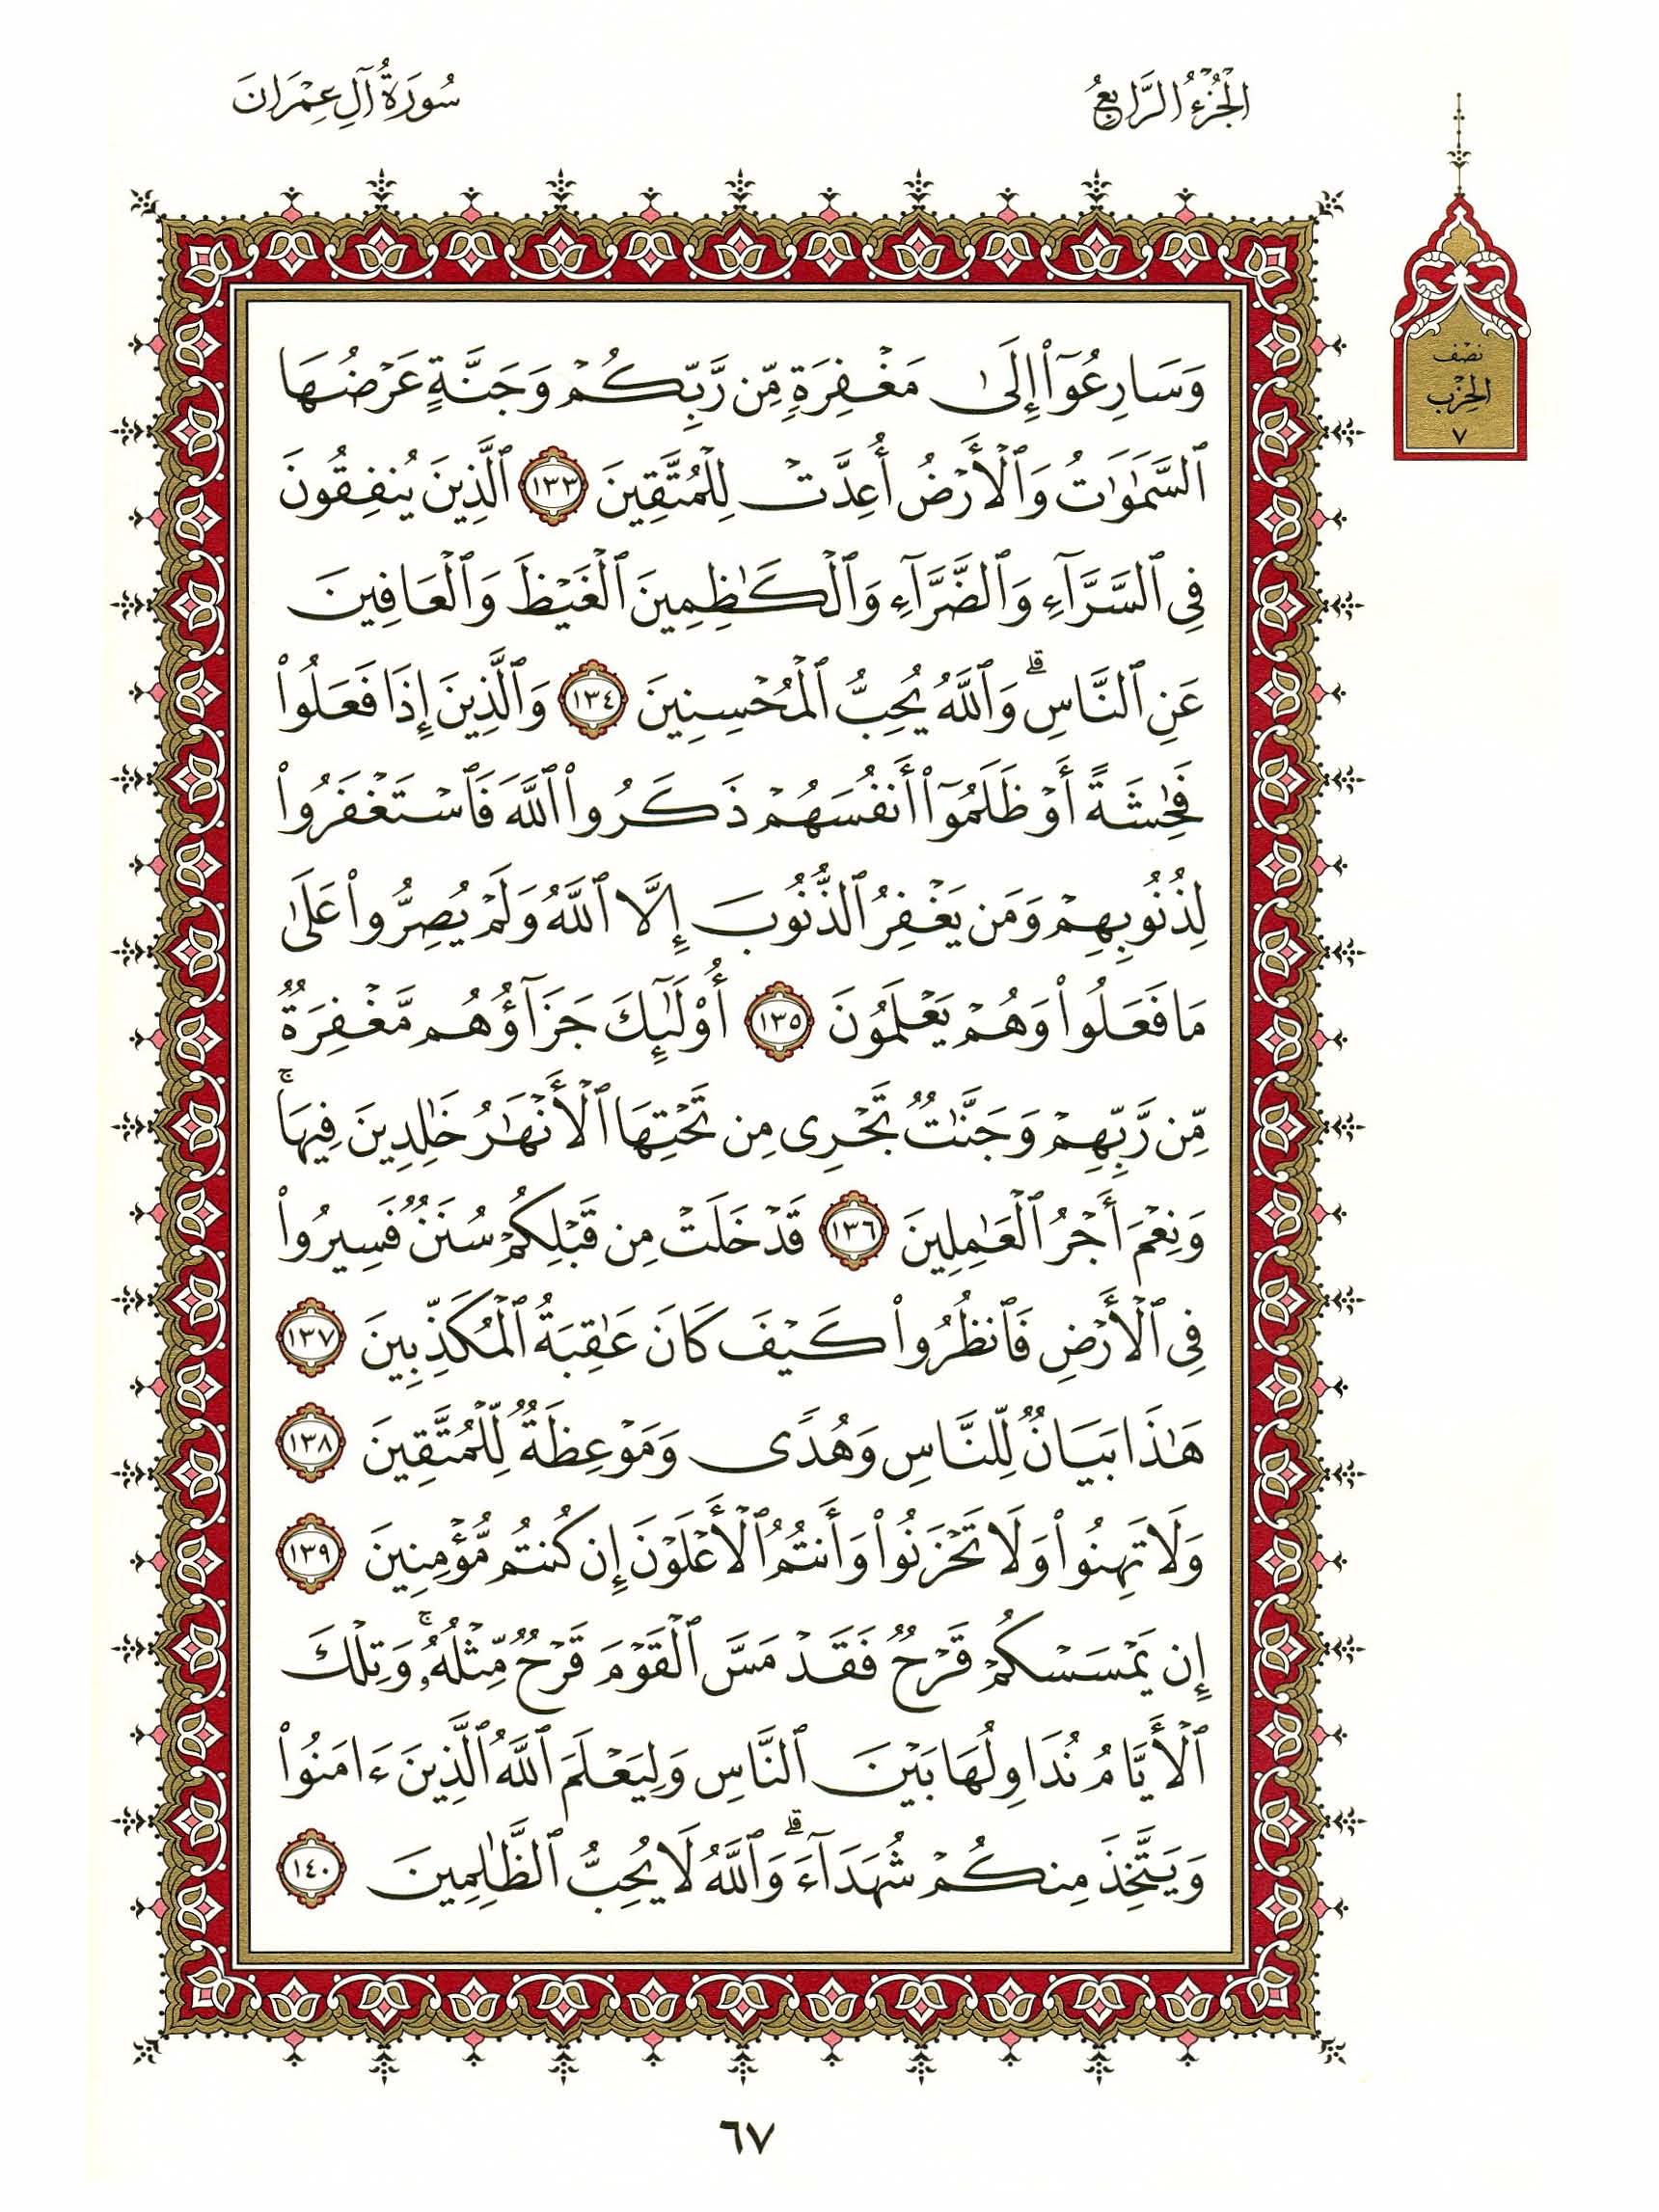 الجُزْءُ الرَّابِعُ
سُورَةُ آلِ عِمْرَانَ
نصف
الحِزْب
٧
وَسَارِعُوٓا۟ إِلَىٰ مَغْفِرَةٍ مِّن رَّبِّكُمْ وَجَنَّةٍ عَرْضُهَا
ٱلسَّمَٰوَٰتُ وَٱلْأَرْضُ أُعِدَّتْ لِلْمُتَّقِينَ ١٣٣ ٱلَّذِينَ يُنفِقُونَ
فِى ٱلسَّرَّآءِ وَٱلضَّرَّآءِ وَٱلْكَٰظِمِينَ ٱلْغَيْظَ وَٱلْعَافِينَ
عَنِ ٱلنَّاسِ ۗ وَٱللَّهُ يُحِبُّ ٱلْمُحْسِنِينَ ١٣٤ وَٱلَّذِينَ إِذَا فَعَلُوا۟
فَٰحِشَةً أَوْ ظَلَمُوٓا۟ أَنفُسَهُمْ ذَكَرُوا۟ ٱللَّهَ فَٱسْتَغْفَرُوا۟
لِذُنُوبِهِمْ وَمَن يَغْفِرُ ٱلذُّنُوبَ إِلَّا ٱللَّهُ وَلَمْ يُصِرُّوا۟ عَلَىٰ
مَا فَعَلُوا۟ وَهُمْ يَعْلَمُونَ ١٣٥ أُو۟لَٰٓئِكَ جَزَآؤُهُم مَّغْفِرَةٌ
مِّن رَّبِّهِمْ وَجَنَّٰتٌ تَجْرِى مِن تَحْتِهَا ٱلْأَنْهَٰرُ خَٰلِدِينَ فِيهَا ۚ
وَنِعْمَ أَجْرُ ٱلْعَٰمِلِينَ ١٣٦ قَدْ خَلَتْ مِن قَبْلِكُمْ سُنَنٌ فَسِيرُوا۟
فِى ٱلْأَرْضِ فَٱنظُرُوا۟ كَيْفَ كَانَ عَٰقِبَةُ ٱلْمُكَذِّبِينَ ١٣٧
هَٰذَا بَيَانٌ لِّلنَّاسِ وَهُدًى وَمَوْعِظَةٌ لِّلْمُتَّقِينَ ١٣٨
وَلَا تَهِنُوا۟ وَلَا تَحْزَنُوا۟ وَأَنتُمُ ٱلْأَعْلَوْنَ إِن كُنتُم مُّؤْمِنِينَ ١٣٩
إِن يَمْسَسْكُمْ قَرْحٌ فَقَدْ مَسَّ ٱلْقَوْمَ قَرْحٌ مِّثْلُهُۥ ۚ وَتِلْكَ
ٱلْأَيَّامُ نُدَاوِلُهَا بَيْنَ ٱلنَّاسِ وَلِيَعْلَمَ ٱللَّهُ ٱلَّذِينَ ءَامَنُوا۟
وَيَتَّخِذَ مِنكُمْ شُهَدَآءَ ۗ وَٱللَّهُ لَا يُحِبُّ ٱلظَّٰلِمِينَ ١٤٠
٦٧